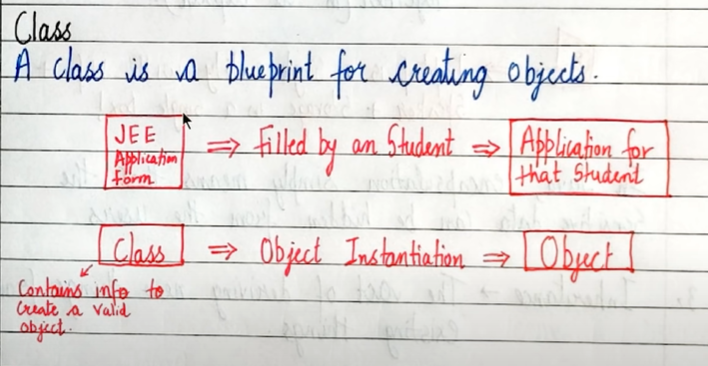 Class
A class is a blueprint for creating objects.
JEE Application form ⇒ Filled by an Student ⇒ Application for that Student
Class ⇒ Object Instantiation ⇒ Object
Contains info to
create a valid
object.